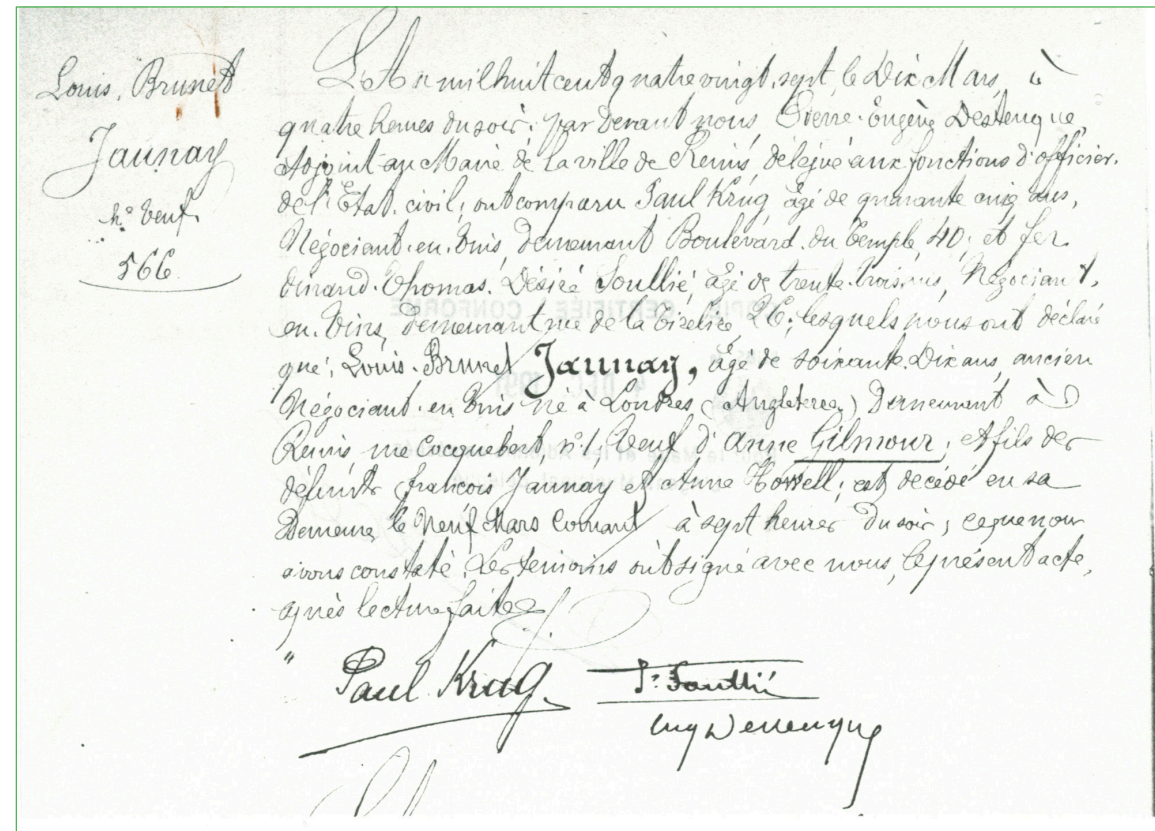 Louis. Brunet
Jaunay
né Veuf.
566
L'An mil huit cent quatre vingt. sept, le Dix Mars, à
quatre heures du soir; par devant nous, Pierre. Eugène Desteuque
Adjoint au Maire de la ville de Reims, délégué aux fonctions d'officier.
de l'État. civil; ont comparu Paul Krug, âgé de quarante cinq ans,
Négociant. en. Vins, demeurant Boulevard. du Temple, 40; et fer
dinand. Thomas. Désiré Soullié, âgé de trente. trois ans, Négociant.
en. Vins, demeurant rue de la 26; lesquels nous ont déclaré
que; Louis. Brunet Jaunay, âgé de soixante. Dix ans, ancien
Négociant. en Vins né à Londres (Angleterre) Demeurant à
Reims rue Cocquebert, n° 1, Veuf d'Anne Gilmour; et fils des
défunts françois Jaunay et Anne Howell; est décédé en sa
Demeure, le Neuf Mars Courant à sept heures Du soir; ce que nous
avons constaté. Les témoins ont signé avec nous, le présent acte,
après lecture faite
COPIE CERTIFIÉE CONFORME
4 DEC. 1991
" Paul Krug. Soullié
Eug Desteuque